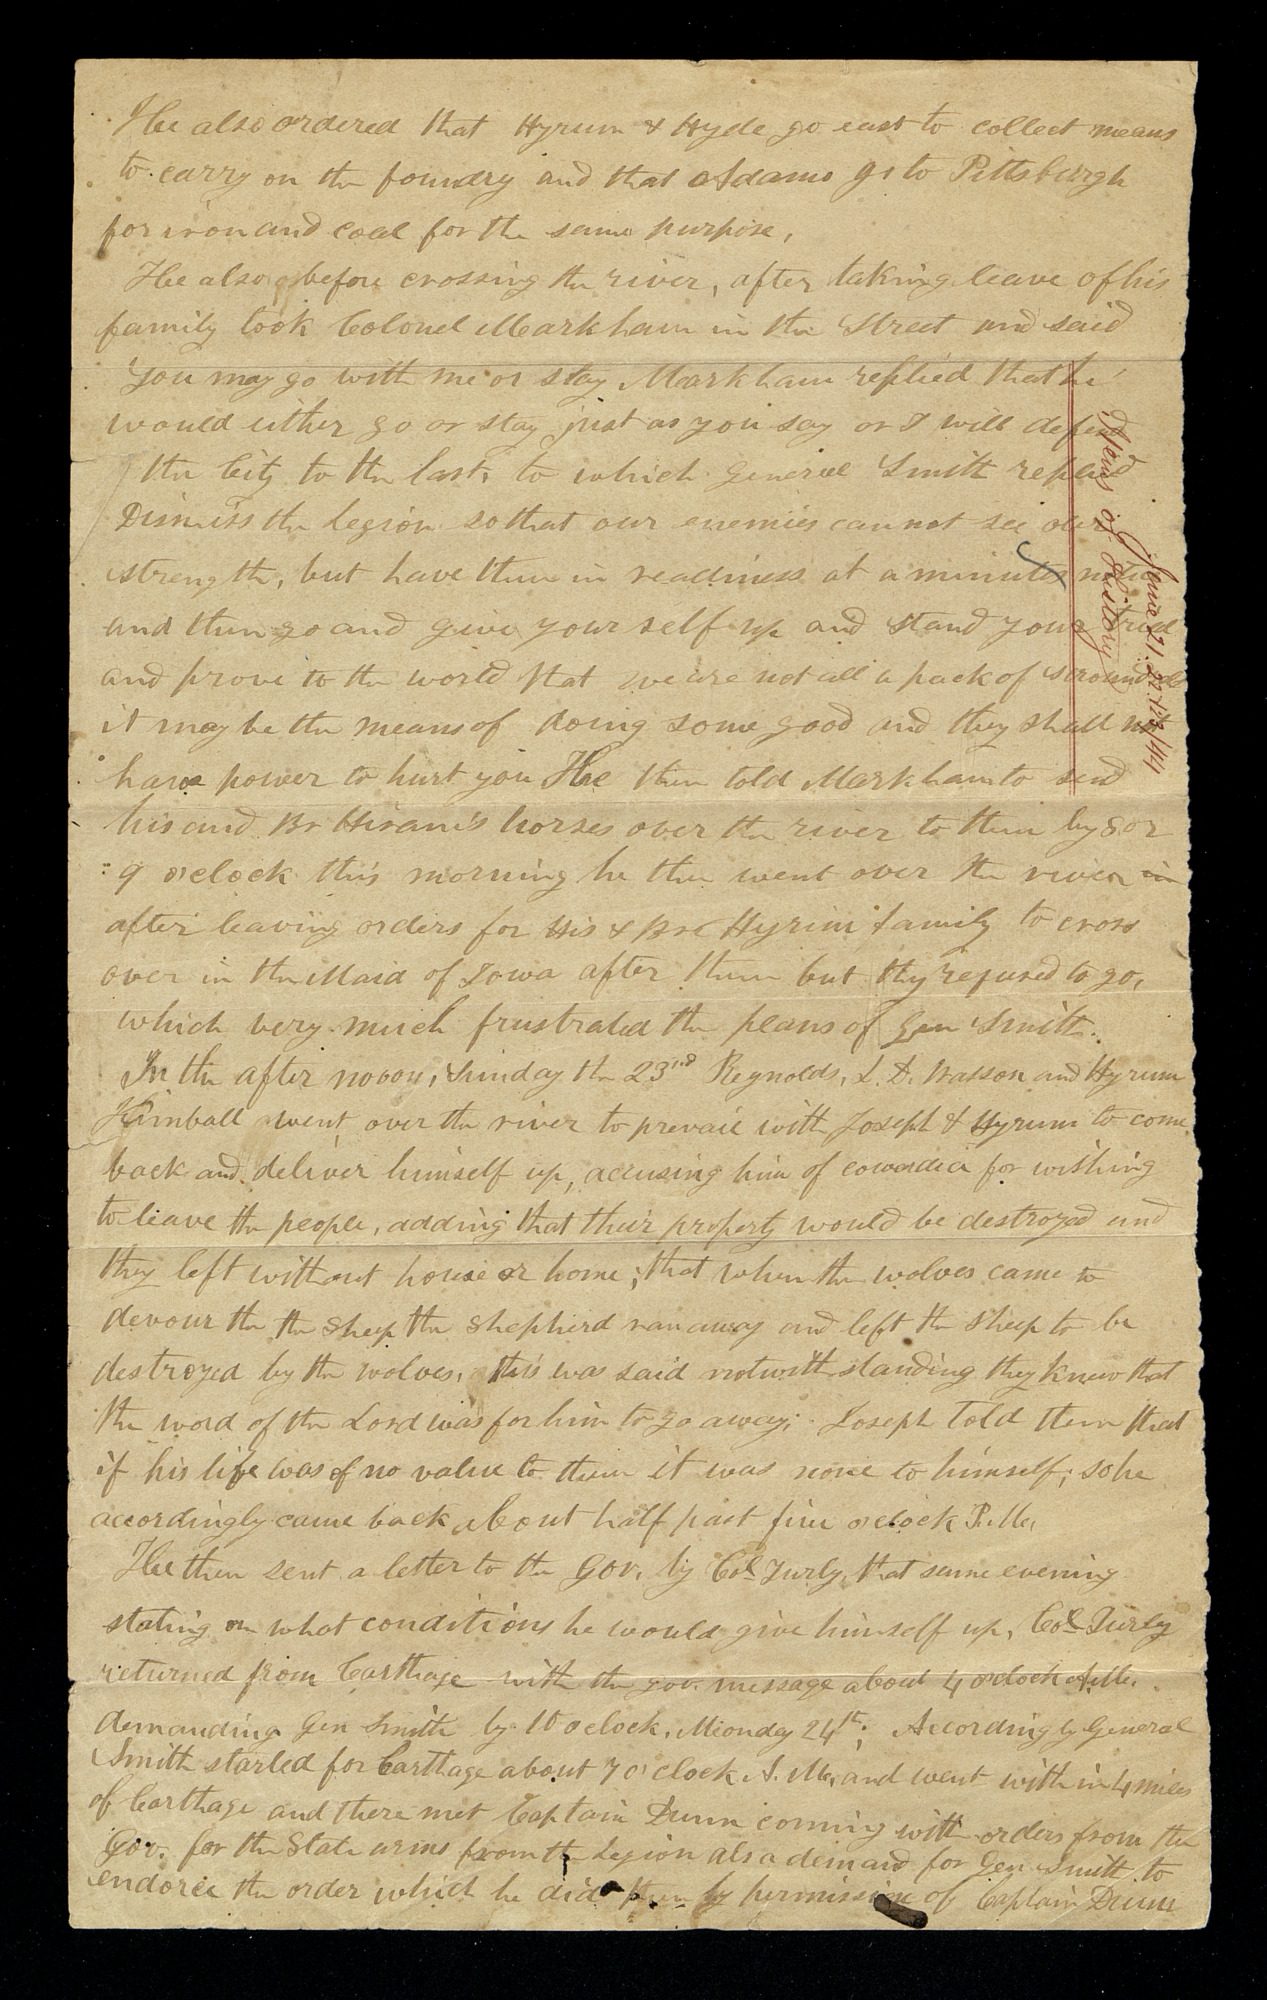 He also ordered that Hyrum & Hyde go east to collect means
to carry on the foundry and that Adams go to Pittsburgh
for iron and coal for the same purpose,
He also before crossing the river, after taking leave of his
family took Colonel Markham in the Street and said
You may go with me or stay Markham replied that he
would either go or stay just as you say or I will defend
the City to the last, to which General Smith replied
Dismiss the Legion so that our enemies cannot see our
strength, but have them in readiness at a minutes notice
and then go and give your self up and stand your trial
and prove to the world that we are not all a pack of scoundrels
it may be the means of doing some good and they shall not
have power to hurt you He then told Markham to send
his and Br Hiram's horses over the river to them by 8 or
9 o'clock this morning he then went over the river in
after leaving orders for His & Br Hyrum family to cross
over in the Maid of Iowa after them but they refused to go,
which very much frustrated the plans of Gen Smith.
In the after nooon, Sunday the 23rd Reynolds, L. D. Wasson and Hyrum
Kimball went over the river to prevail with Joseph & Hyrum to come
back and deliver himself up, accusing him of cowardice for wishing
to leave the people, adding that their property would be destroyed and
they left without house or home; that when the wolves came to
devour the the sheep the shepherd ran away and left the sheep to be
destroyed by the wolves, this was said notwithstanding they knew that
the word of the Lord was for him to go away; Joseph told them that
if his life was of no value to them it was none to himself; so he
accordingly came back about half past five o'clock P.M.
He then sent a letter to the Gov. by Col Turly, that same evening
stating on what conditions he would give himself up, Col Turly
returned from Carthage with the gov. message about 4 o'clock A.M.
demanding Gen Smith by 10 o clock, Monday 24th; Accordingly General
Smith started for Carthage about 7 o'clock A.M. and went with in 4 miles
of Carthage and there met Captain Dunn coming with orders from the
Gov. for the State arms from the Legion als a demand for Gen Smith to
endorce the order which he did then by permission of Captain Dunn
Items of History
June 21. 22. 23/44